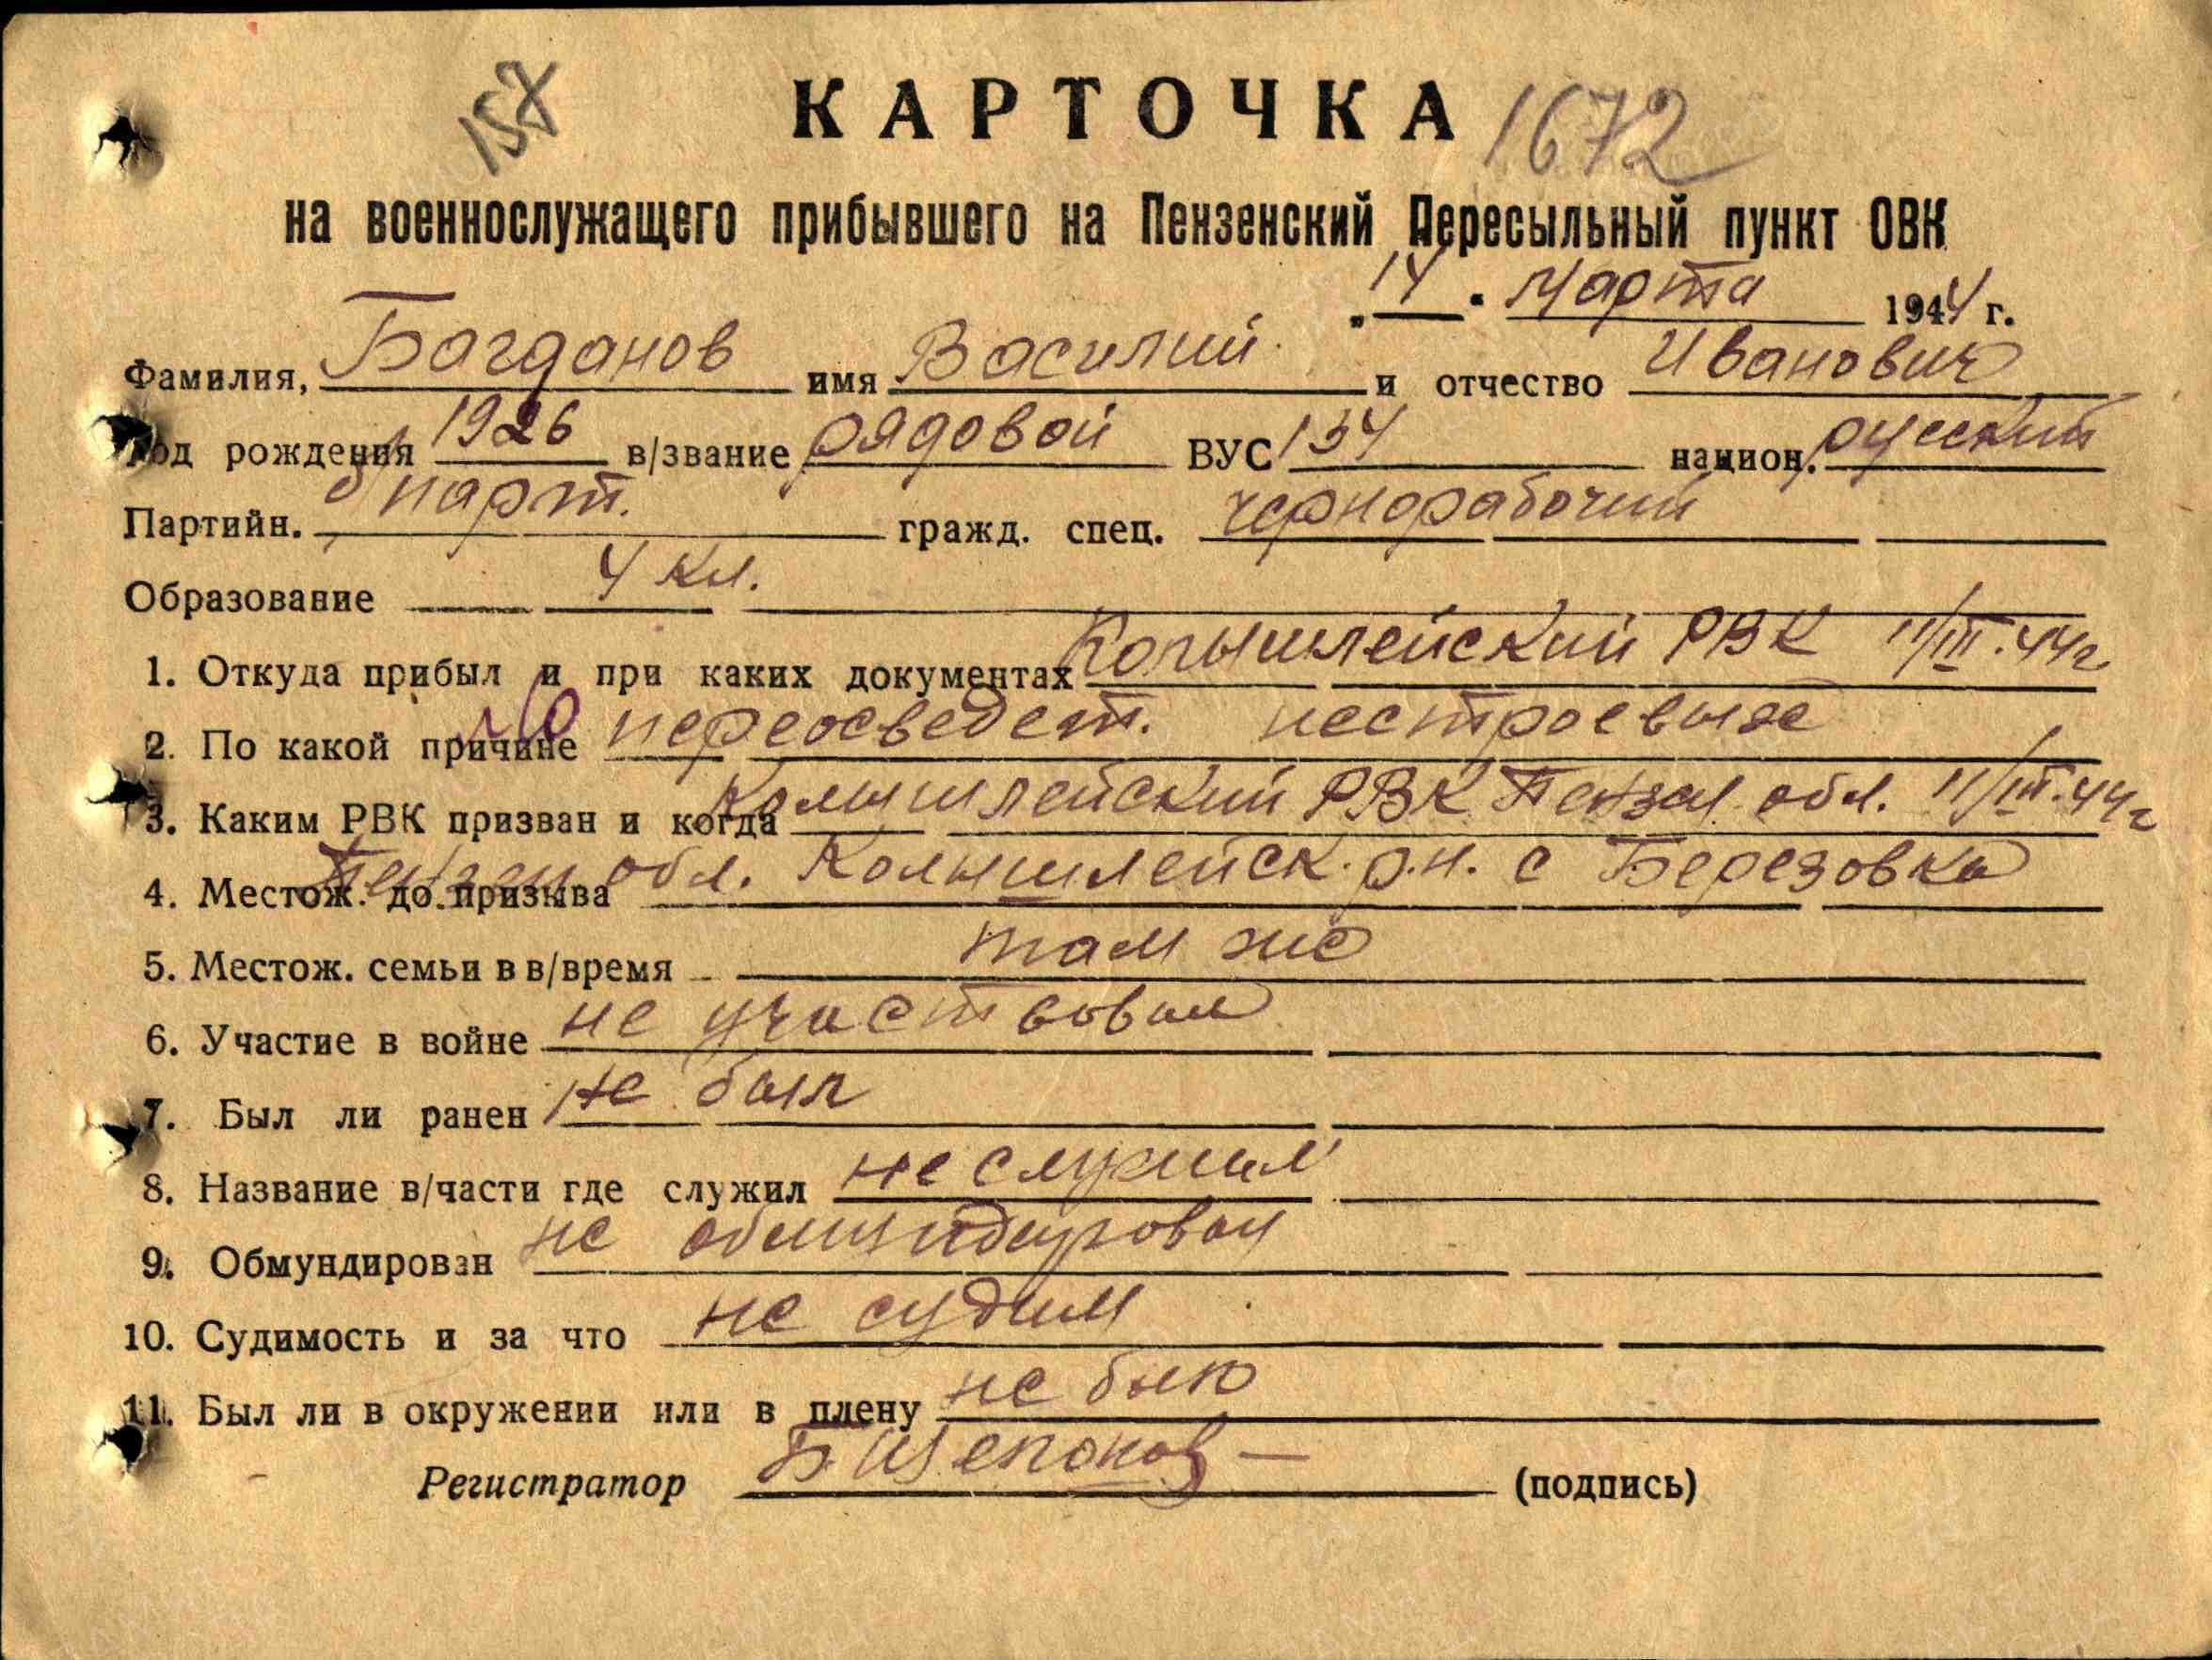 157
КАРТОЧКА 1672
на военнослужащего прибывшего на Пензенский Пересыльный пункт ОВК
„14" Марта 1944 г.
Фамилия, Богданов имя Василий и отчество Иванович
Год рождения 1926 в/звание рядовой ВУС 134 национ. русский
Партийн. б/парт. гражд. спец. чернорабочий
Образование 4 кл.
1. Откуда прибыл и при каких документах Колышлейский РВК 11/III.44г
2. По какой причине переосведет. нестроевые
3. Каким РВК призван и когда Колышлейский РВК Пензен. обл. 11/III.44г
4. Местож. до призыва Пензен обл. Колышлейск. р.н. с Березовка
5. Местож. семьи в в/время там же
6. Участие в войне не участвовал
7. Был ли ранен не был
8. Название в/части где служил не служил
9. Обмундирован не обмундирован
10. Судимость и за что не судим
11. Был ли в окружении или в плену не был
Регистратор (подпись)